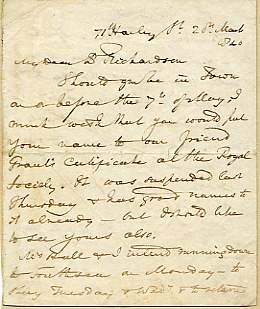 71 Harley St. 28th March
1840
My dear Dr Richardson
Should you be in Town
on or before the 7th of May, I
much wish that you would put
your name to our friend
Grant's Certificate at the Royal
Society. It was suspended last
Thursday & has good names to
it already - but I should like
to see yours also.
Mrs & I intend running down
to Southsea on Monday - to
stay Tuesday & Wedy & to return